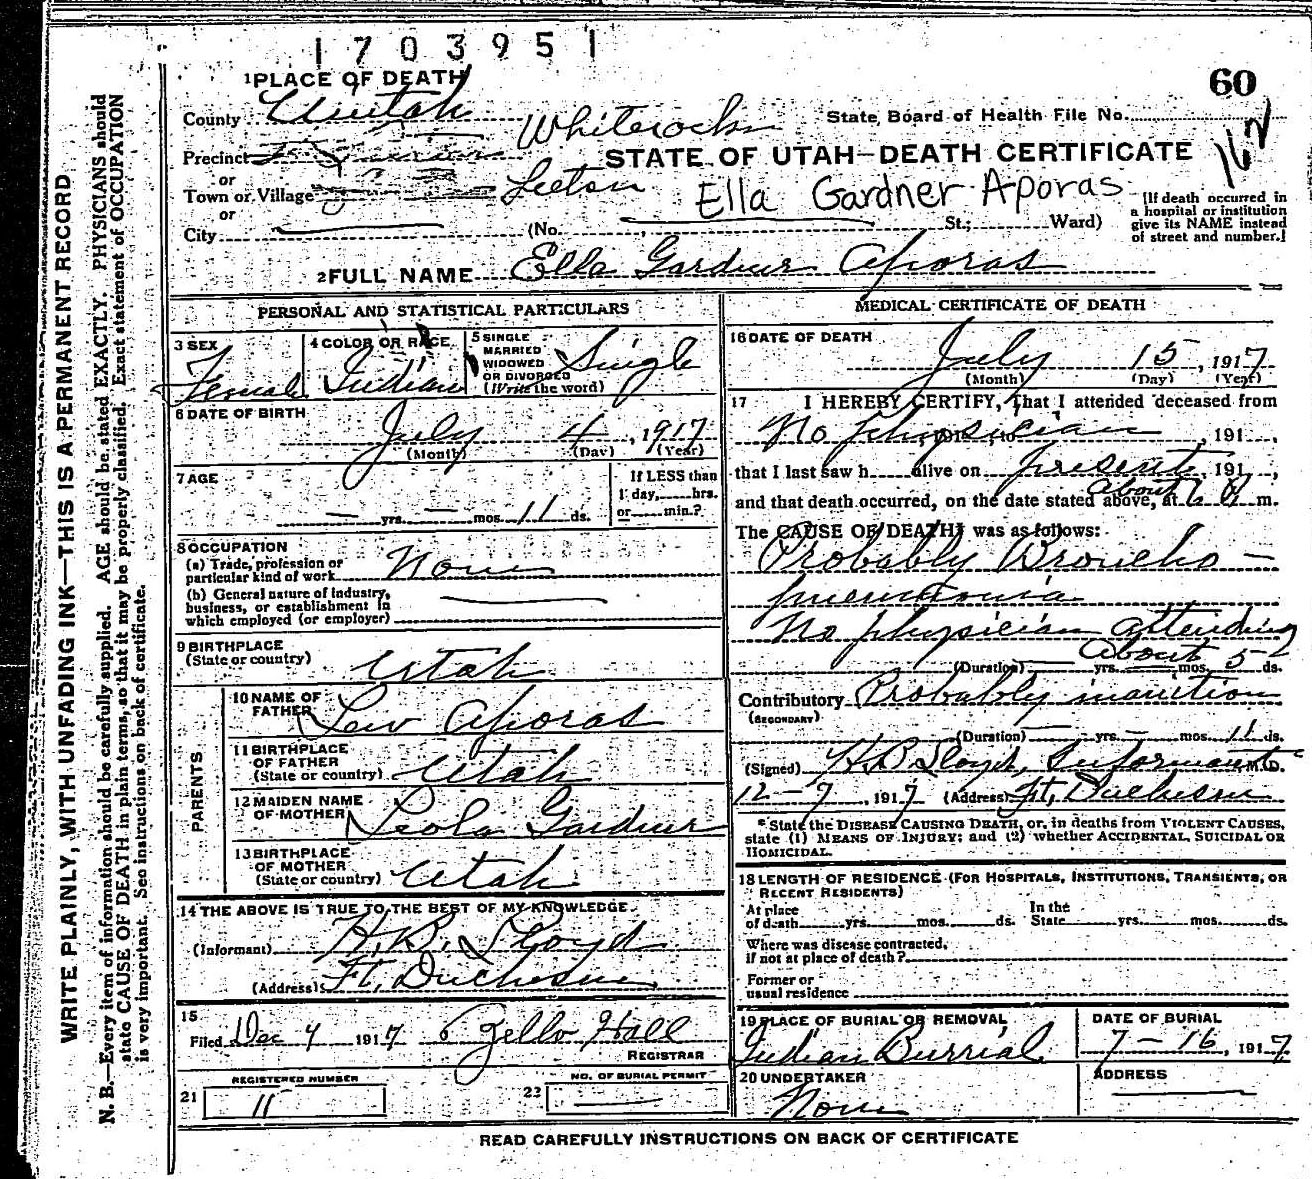 1703951
1 PLACE OF DEATH
60
County Uintah
Whiterocks
State Board of Health File No.
162
Precinct
STATE OF UTAH—DEATH CERTIFICATE
or
Town or Village Leeton
Ella Gardner Aporas
or
City (No. , St.; Ward)
[If death occurred in
a hospital or institution
give its NAME instead
of street and number.]
2 FULL NAME Ella Gardner Aporas
PERSONAL AND STATISTICAL PARTICULARS
3 SEX
Female
4 COLOR OR RACE
Indian
5 SINGLE
MARRIED
WIDOWED
OR DIVORCED
(Write the word)
Single
6 DATE OF BIRTH
July 4, 1917
(Month) (Day) (Year)
7 AGE
— yrs. — mos. 11 ds.
If LESS than
1 day, hrs.
or min.?
8 OCCUPATION
(a) Trade, profession or
particular kind of work None
(b) General nature of industry,
business, or establishment in
which employed (or employer)
9 BIRTHPLACE
(State or country) Utah
PARENTS
10 NAME OF
FATHER Lew Aporas
11 BIRTHPLACE
OF FATHER
(State or country) Utah
12 MAIDEN NAME
OF MOTHER Leola Gardner
13 BIRTHPLACE
OF MOTHER
(State or country) Utah
14 THE ABOVE IS TRUE TO THE BEST OF MY KNOWLEDGE
(Informant) H.B. Lloyd
(Address) Ft. Duchesne
15
Filed Dec 4 1917 Zello Hall
REGISTRAR
REGISTERED NUMBER
21 11
NO. OF BURIAL PERMIT
22 —
MEDICAL CERTIFICATE OF DEATH
16 DATE OF DEATH
July 15, 1917
(Month) (Day) (Year)
17 I HEREBY CERTIFY, That I attended deceased from
No physician , 191 ,
that I last saw h alive on present 191 ,
and that death occurred, on the date stated above, at about m.
The CAUSE OF DEATH was as follows:
Probably Broncho-
pneumonia
No physician attending
(Duration) yrs. mos. about 5 ds.
Contributory Probably inanition
(SECONDARY)
(Duration) — yrs. — mos. 11 ds.
(Signed) H.B. Lloyd, Informant M.D.
12-7, 1917 (Address) Ft. Duchesne
* State the DISEASE CAUSING DEATH, or, in deaths from VIOLENT CAUSES,
state (1) MEANS OF INJURY; and (2) whether ACCIDENTAL, SUICIDAL OR
HOMICIDAL.
18 LENGTH OF RESIDENCE (FOR HOSPITALS, INSTITUTIONS, TRANSIENTS, OR
RECENT RESIDENTS)
At place
of death yrs. mos. ds.
In the
State yrs. mos. ds.
Where was disease contracted,
if not at place of death?
Former or
usual residence
19 PLACE OF BURIAL OR REMOVAL
Indian Burrial
DATE OF BURIAL
7-16, 1917
20 UNDERTAKER
None
ADDRESS
READ CAREFULLY INSTRUCTIONS ON BACK OF CERTIFICATE
WRITE PLAINLY, WITH UNFADING INK—THIS IS A PERMANENT RECORD
N. B.—Every item of information should be carefully supplied. AGE should be stated EXACTLY. PHYSICIANS should
state CAUSE OF DEATH in plain terms, so that it may be properly classified. Exact statement of OCCUPATION
is very important. See instructions on back of certificate.